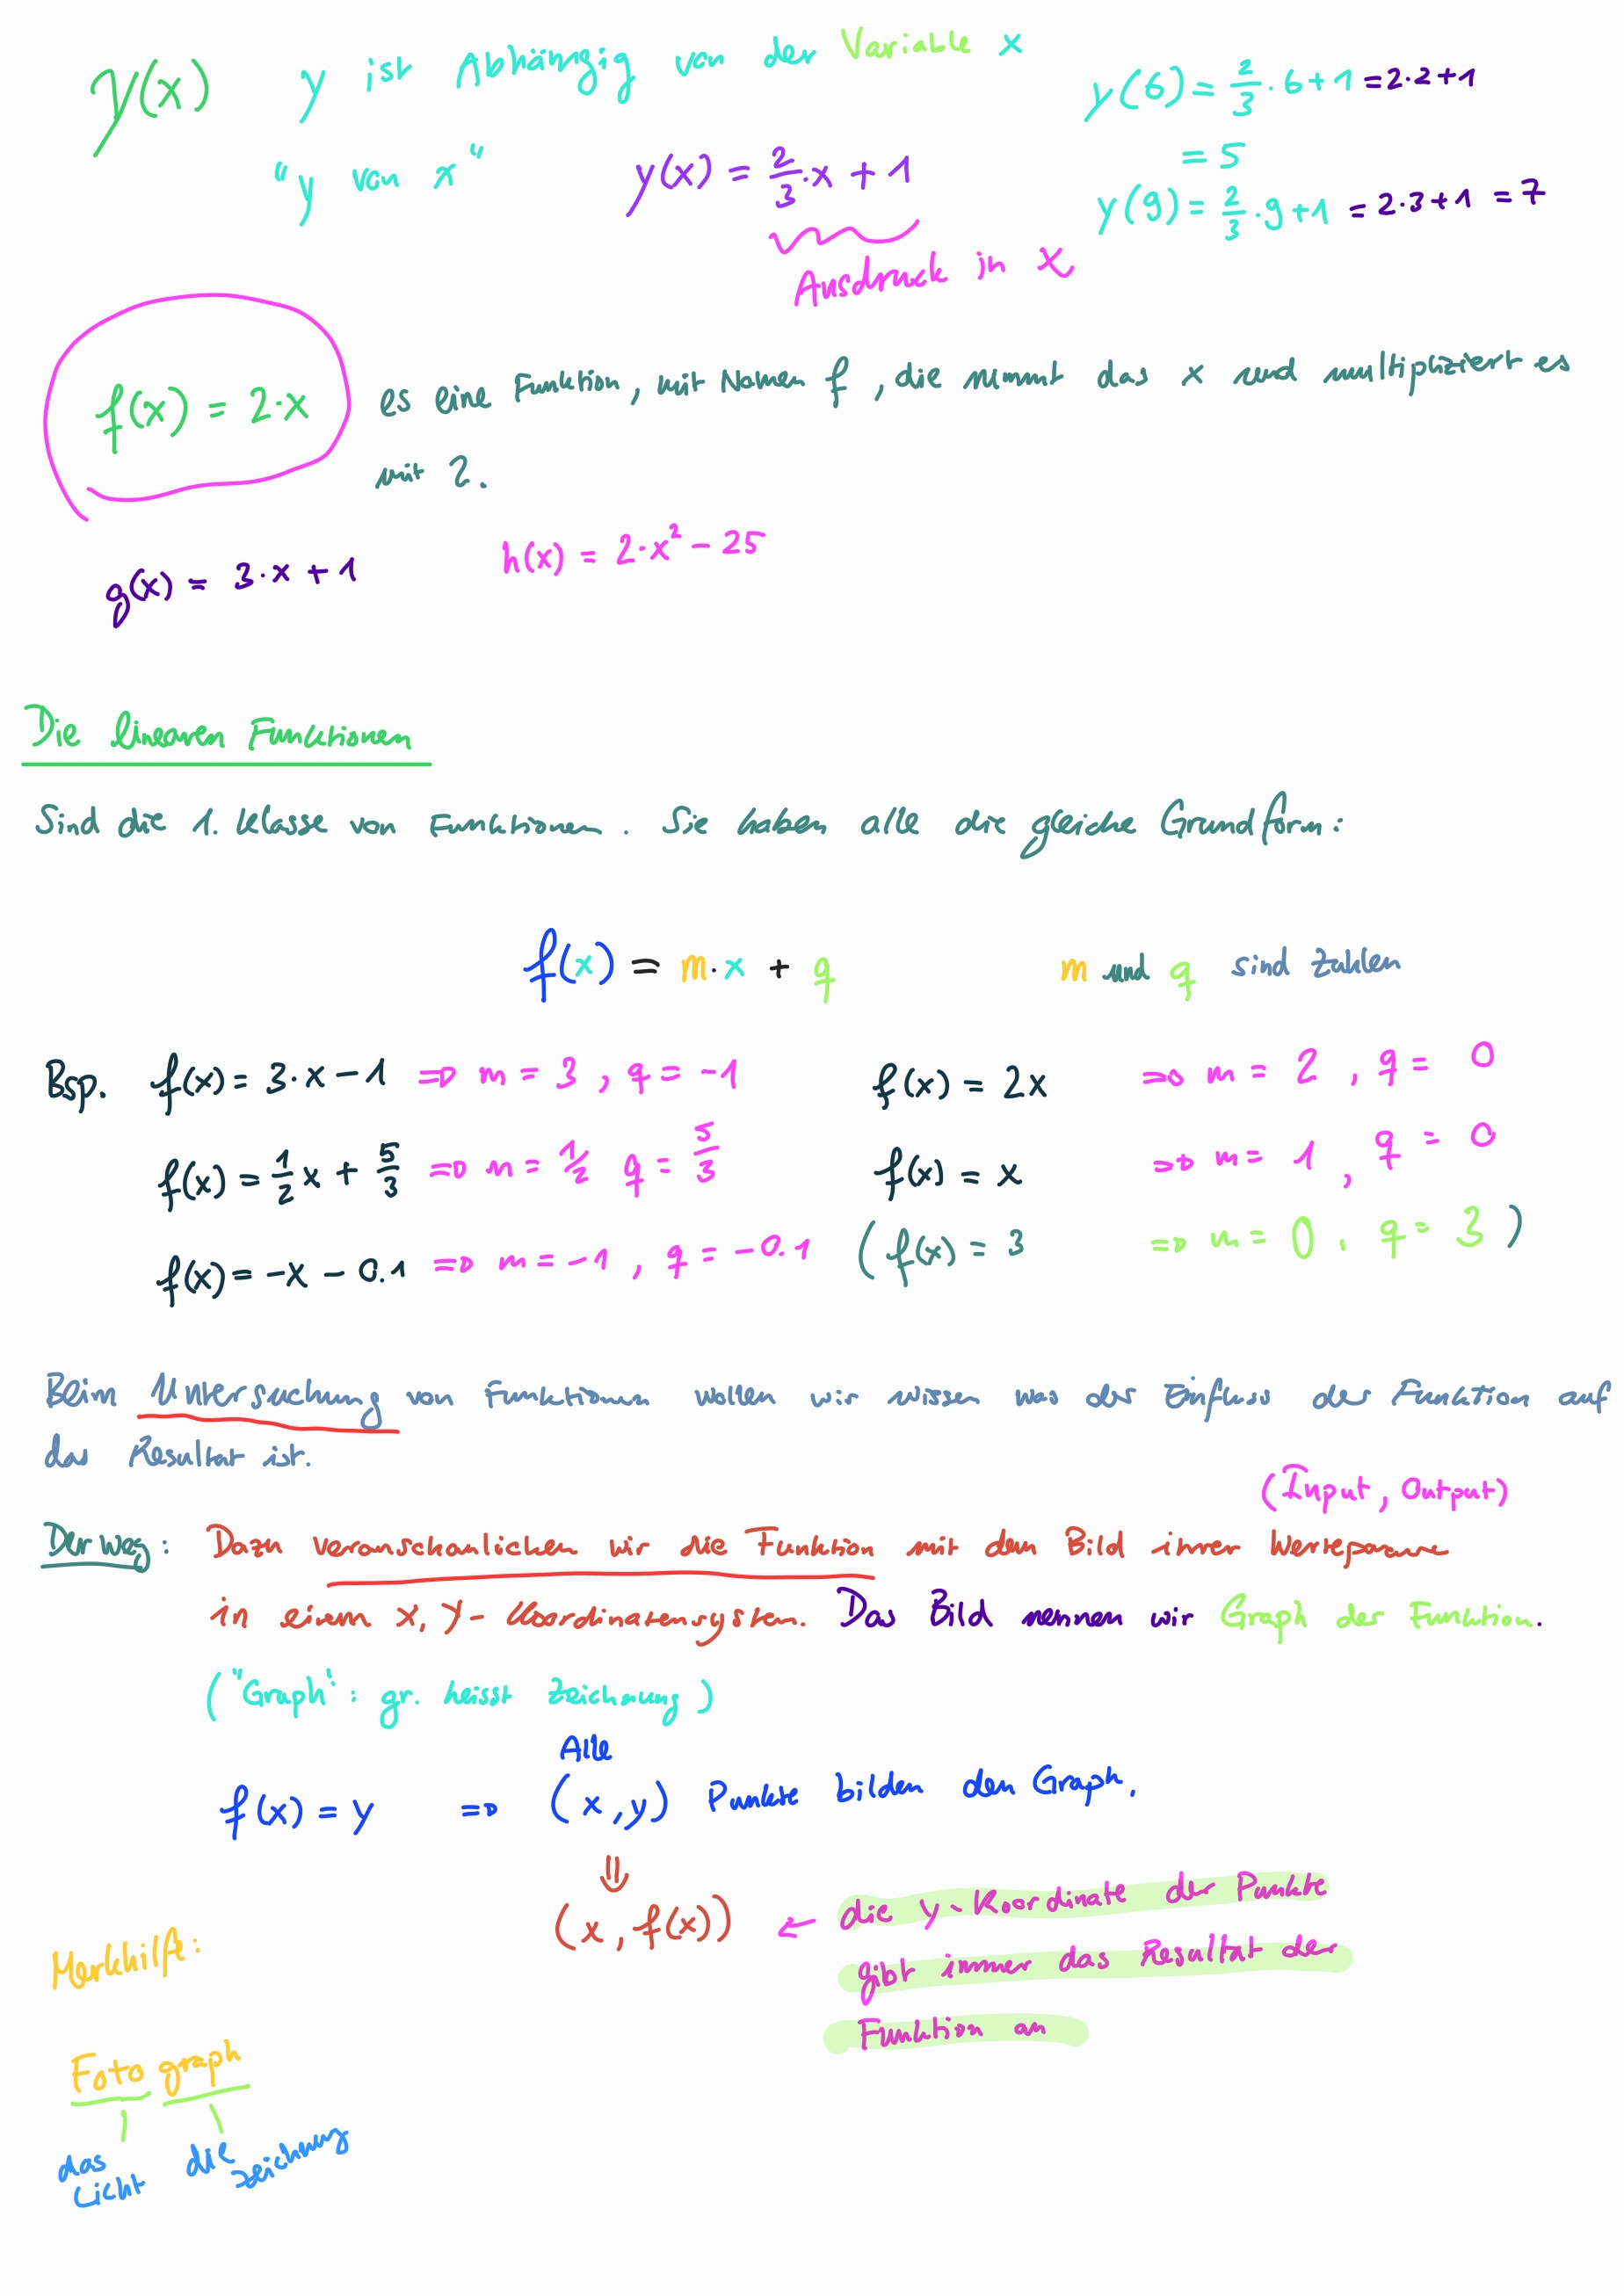 y(x) y ist Abhängig von der Variable x
y(6) = 2/3 · 6 + 1 = 2·2+1
= 5
"y von x" y(x) = 2/3 · x + 1
y(9) = 2/3 · 9 + 1 = 2·3+1 = 7
Ausdruck in x
f(x) = 2·x es eine Funktion, mit Namen f, die nimmt das x und multipliziert es
mit 2.
g(x) = 3·x + 1 h(x) = 2·x² − 25
Die linearen Funktionen
Sind die 1. Klasse von Funktionen. Sie haben alle die gleiche Grundform:
f(x) = m·x + q m und q sind Zahlen
Bsp. f(x) = 3·x − 1 => m = 3, q = −1 f(x) = 2x => m = 2, q = 0
f(x) = 1/2 x + 5/3 => m = 1/2 q = 5/3 f(x) = x => m = 1, q = 0
f(x) = −x − 0.1 => m = −1, q = −0.1 (f(x) = 3 => m = 0, q = 3)
Beim Untersuchung von Funktionen wollen wir wissen was der Einfluss der Funktion auf
das Resultat ist.
(Input, Output)
Der Weg: Dazu veranschaulichen wir die Funktion mit dem Bild ihrer Wertepaare
in einem x, y- Koordinatensystem. Das Bild nennen wir Graph der Funktion.
("Graph": gr. heisst Zeichnung)
Alle
f(x) = y => (x, y) Punkte bilden den Graph.
⇓
(x, f(x)) ← die y-Koordinate der Punkte
gibt immer das Resultat der
Funktion an
Merkhilfe:
Foto graph
das Licht die Zeichnung